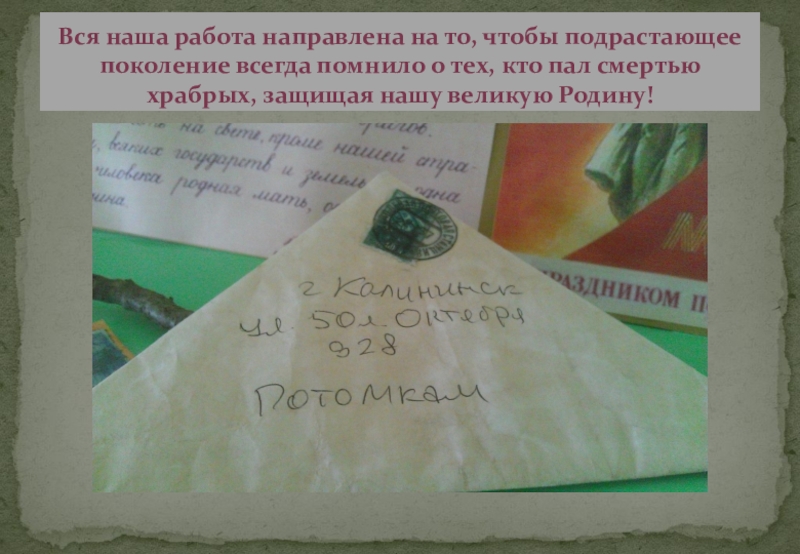 Вся наша работа направлена на то, чтобы подрастающее
поколение всегда помнило о тех, кто пал смертью
храбрых, защищая нашу великую Родину!
на свете, кроме нашей стра-
всяких государств и земель одна
человека родная мать,
г Калининск
ул. 50 л. Октября
928
Потомкам
М
РАЗДНИКОМ П